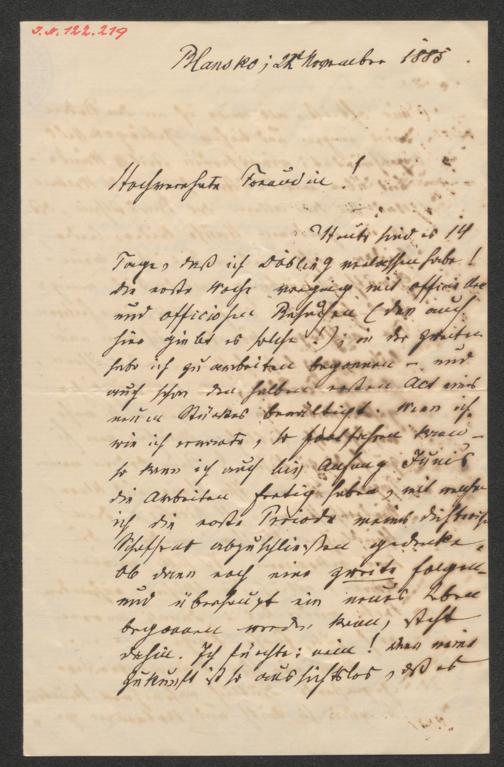 J.N. 122.219
Blansko, 22t November 1885.
Hochverehrte Freundin!
Heute sind es 14
Tage, daß ich Döbling verlassen habe!
Die erste Woche verging mit officiellen
und officiösen Besuchen (denn auch
hier giebt es solche!); in der zweiten
habe ich zu arbeiten begonnen – und
auch schon den halben ersten Act eines
neuen Stückes bewältigt. Wenn ich,
wie ich erwarte, so fortfahren kann –
so kann ich auch bis Anfang Juni's
die Arbeiten fertig haben, mit welchen
ich die erste Periode meines dichterischen
Schaffens abzuschließen gedenke.
Ob dann noch eine zweite folgen –
und überhaupt ein neues Leben
begonnen werden kann, steht
dahin. Ich fürchte: nein! Denn meine
Zukunft ist so aussichtslos, daß es